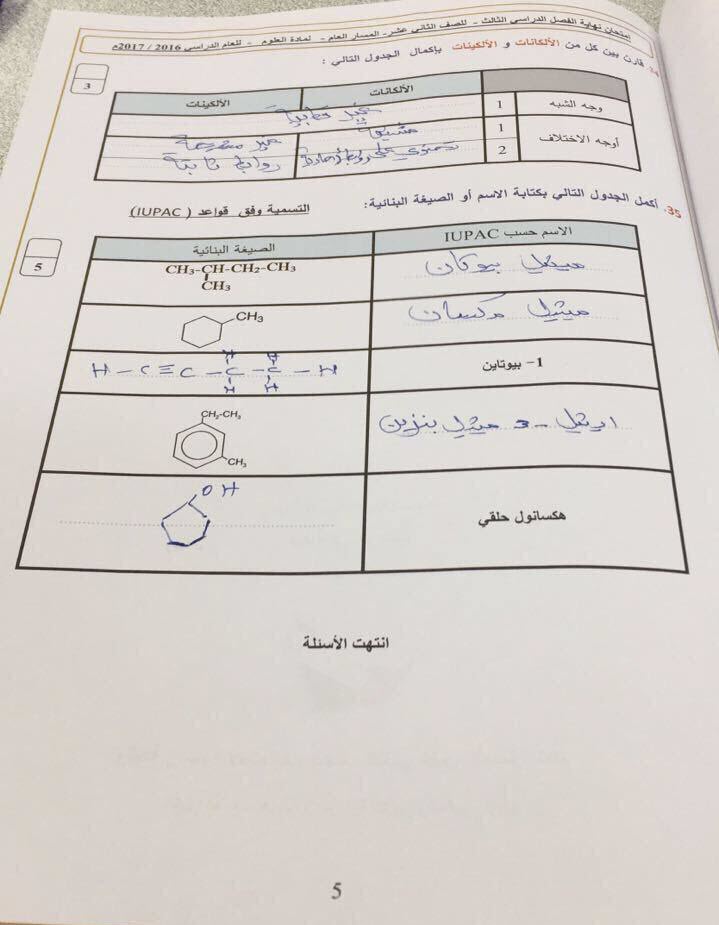 إمتحان نهاية الفصل الدراسي الثالث - للصف الثاني عشر- المسار العام - لمادة العلوم - للعام الدراسي 2016 / 2017م
34. قارن بين كل من الألكانات و الألكينات بإكمال الجدول التالي :
3
الألكانات الألكينات
وجه الشبه 1 غير قطبية
أوجه الاختلاف 1 مشبعة غير مشبعة
2 تحتوي على روابط أحادية روابط ثنائية
35. أكمل الجدول التالي بكتابة الاسم أو الصيغة البنائية: التسمية وفق قواعد (IUPAC)
5
الاسم حسب IUPAC الصيغة البنائية
ميثيل بيوتان CH₃-CH-CH₂-CH₃
CH₃
ميثيل هكسان CH₃
1- بيوتاين H - C ≡ C - C - C - H
H H
H H
ايثيل - 3 ميثيل بنزين CH₂-CH₃
CH₃
هكسانول حلقي OH
انتهت الأسئلة
5